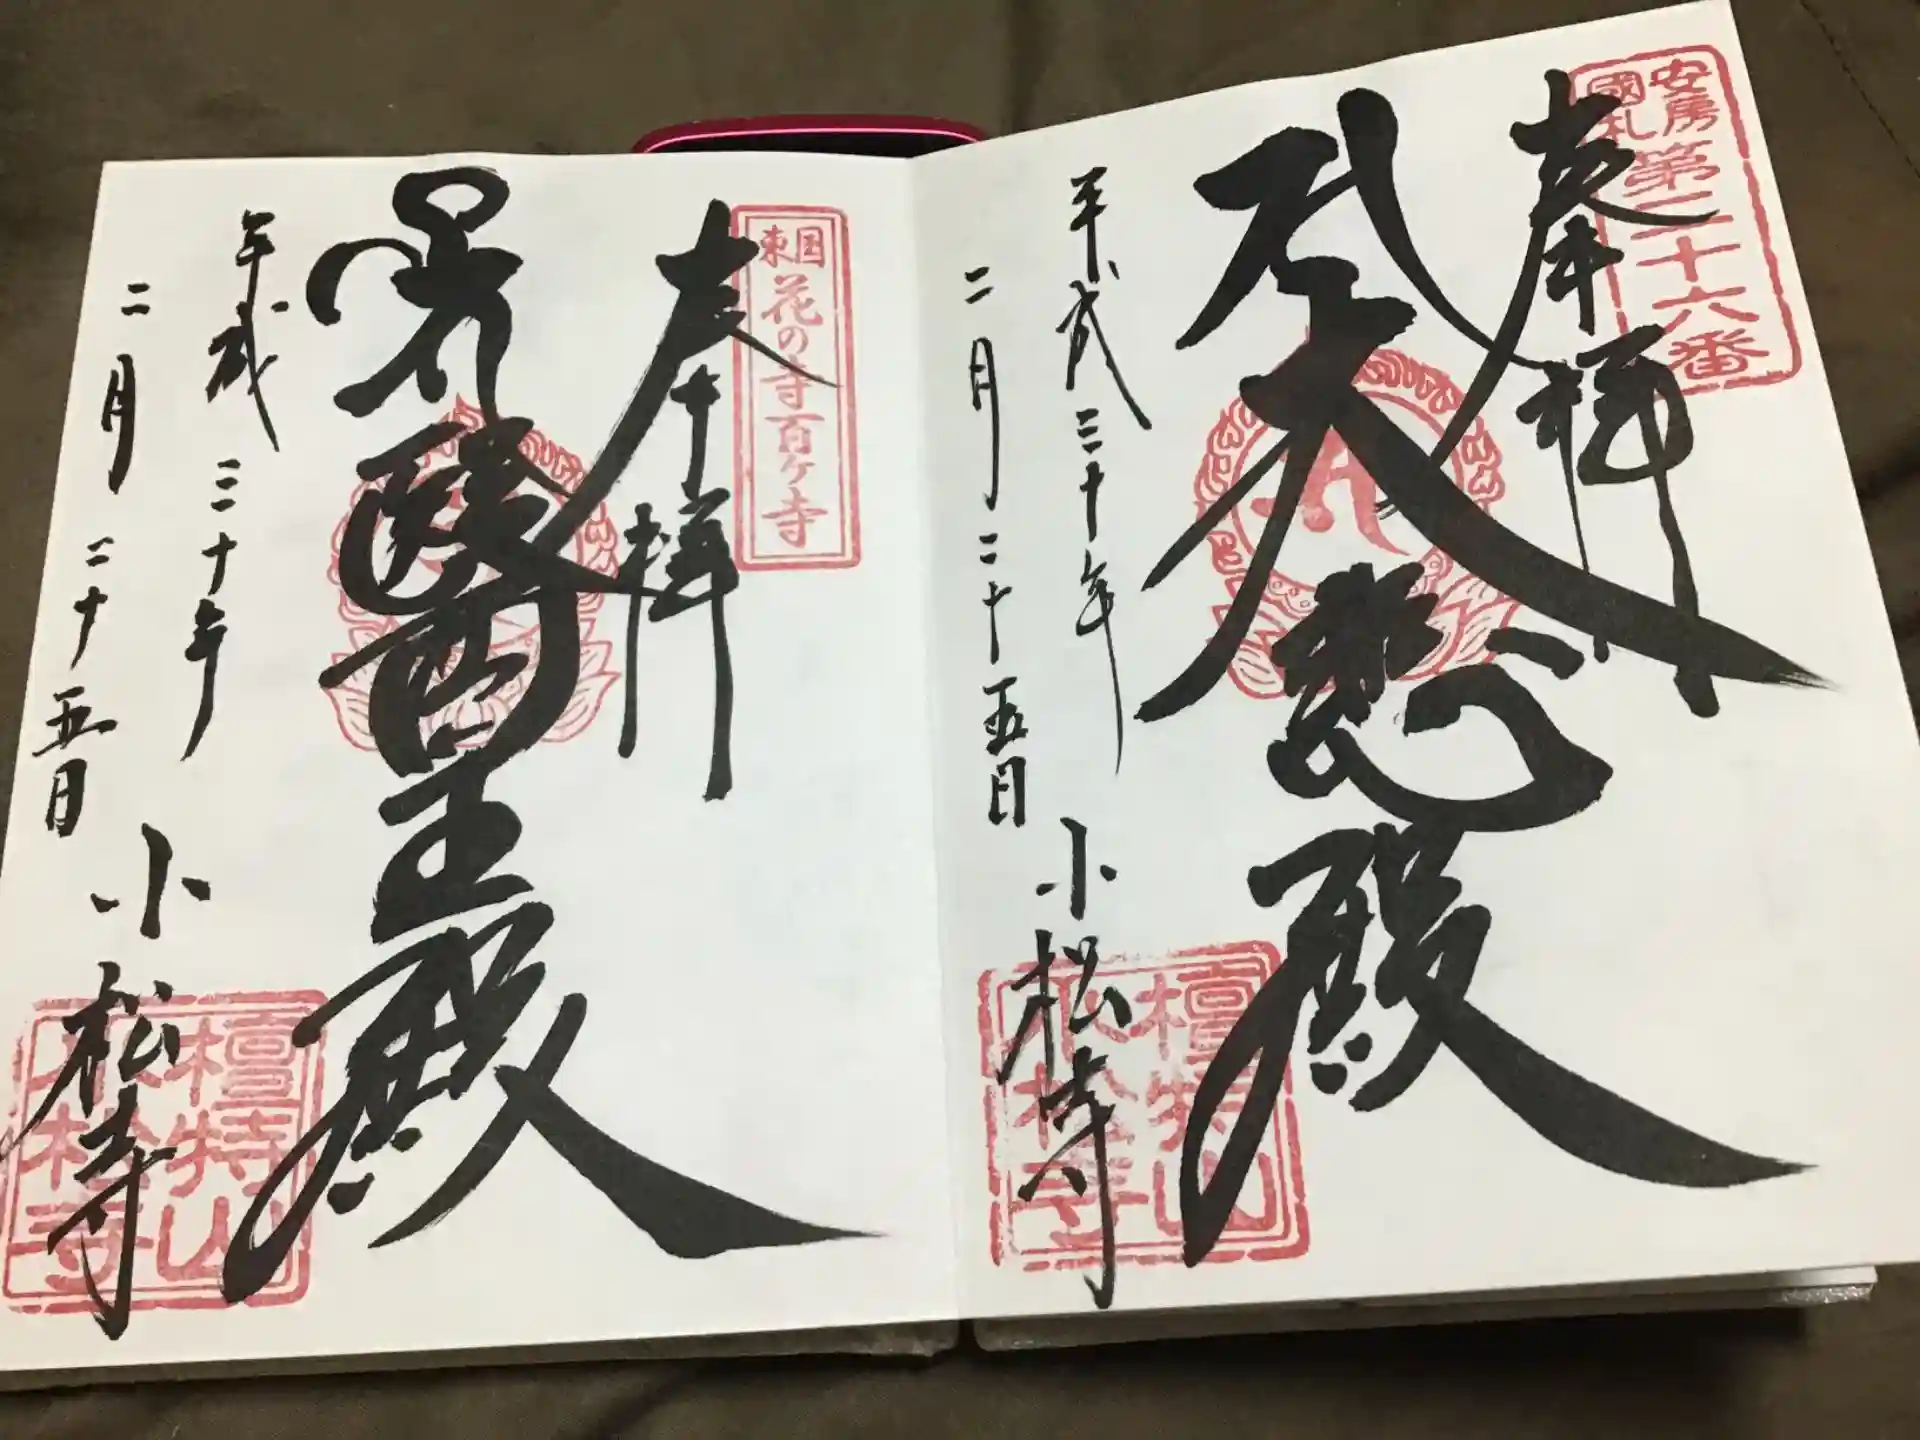 安房
國札
第二十六番
奉拝
大悲殿
平成三十年
二月二十五日
小松寺
檀特山
小松寺
東国
花の寺百ヶ寺
奉拝
醫王殿
平成三十年
二月二十五日
小松寺
檀特山
小松寺